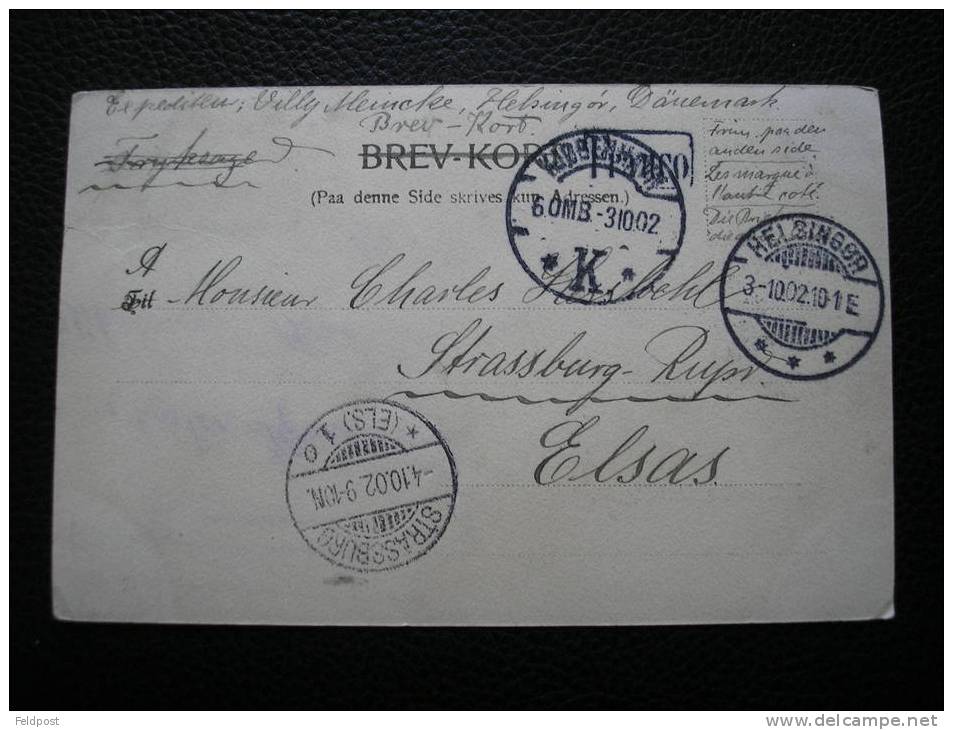 Expediteur; Willy Meincke, Helsingör, Dänemark.
Brev-Kort.
Tryksage
BREV-KORT
(Paa denne Side skrives kun Adressen.)
Frim. paa den
anden side
Les marques à
l'autre coté.
KJØBENHAVN
6.OMB.-310.02
* K *
HELSINGØR
3-10.02.10-1 E
* * *
A
Til Monsieur Charles
Strassburg- Rupr.
Elsas.
STRASSBURG
-4.10.02.9-10N.
* (ELS) 10
Feldpost
www.delcampe.net